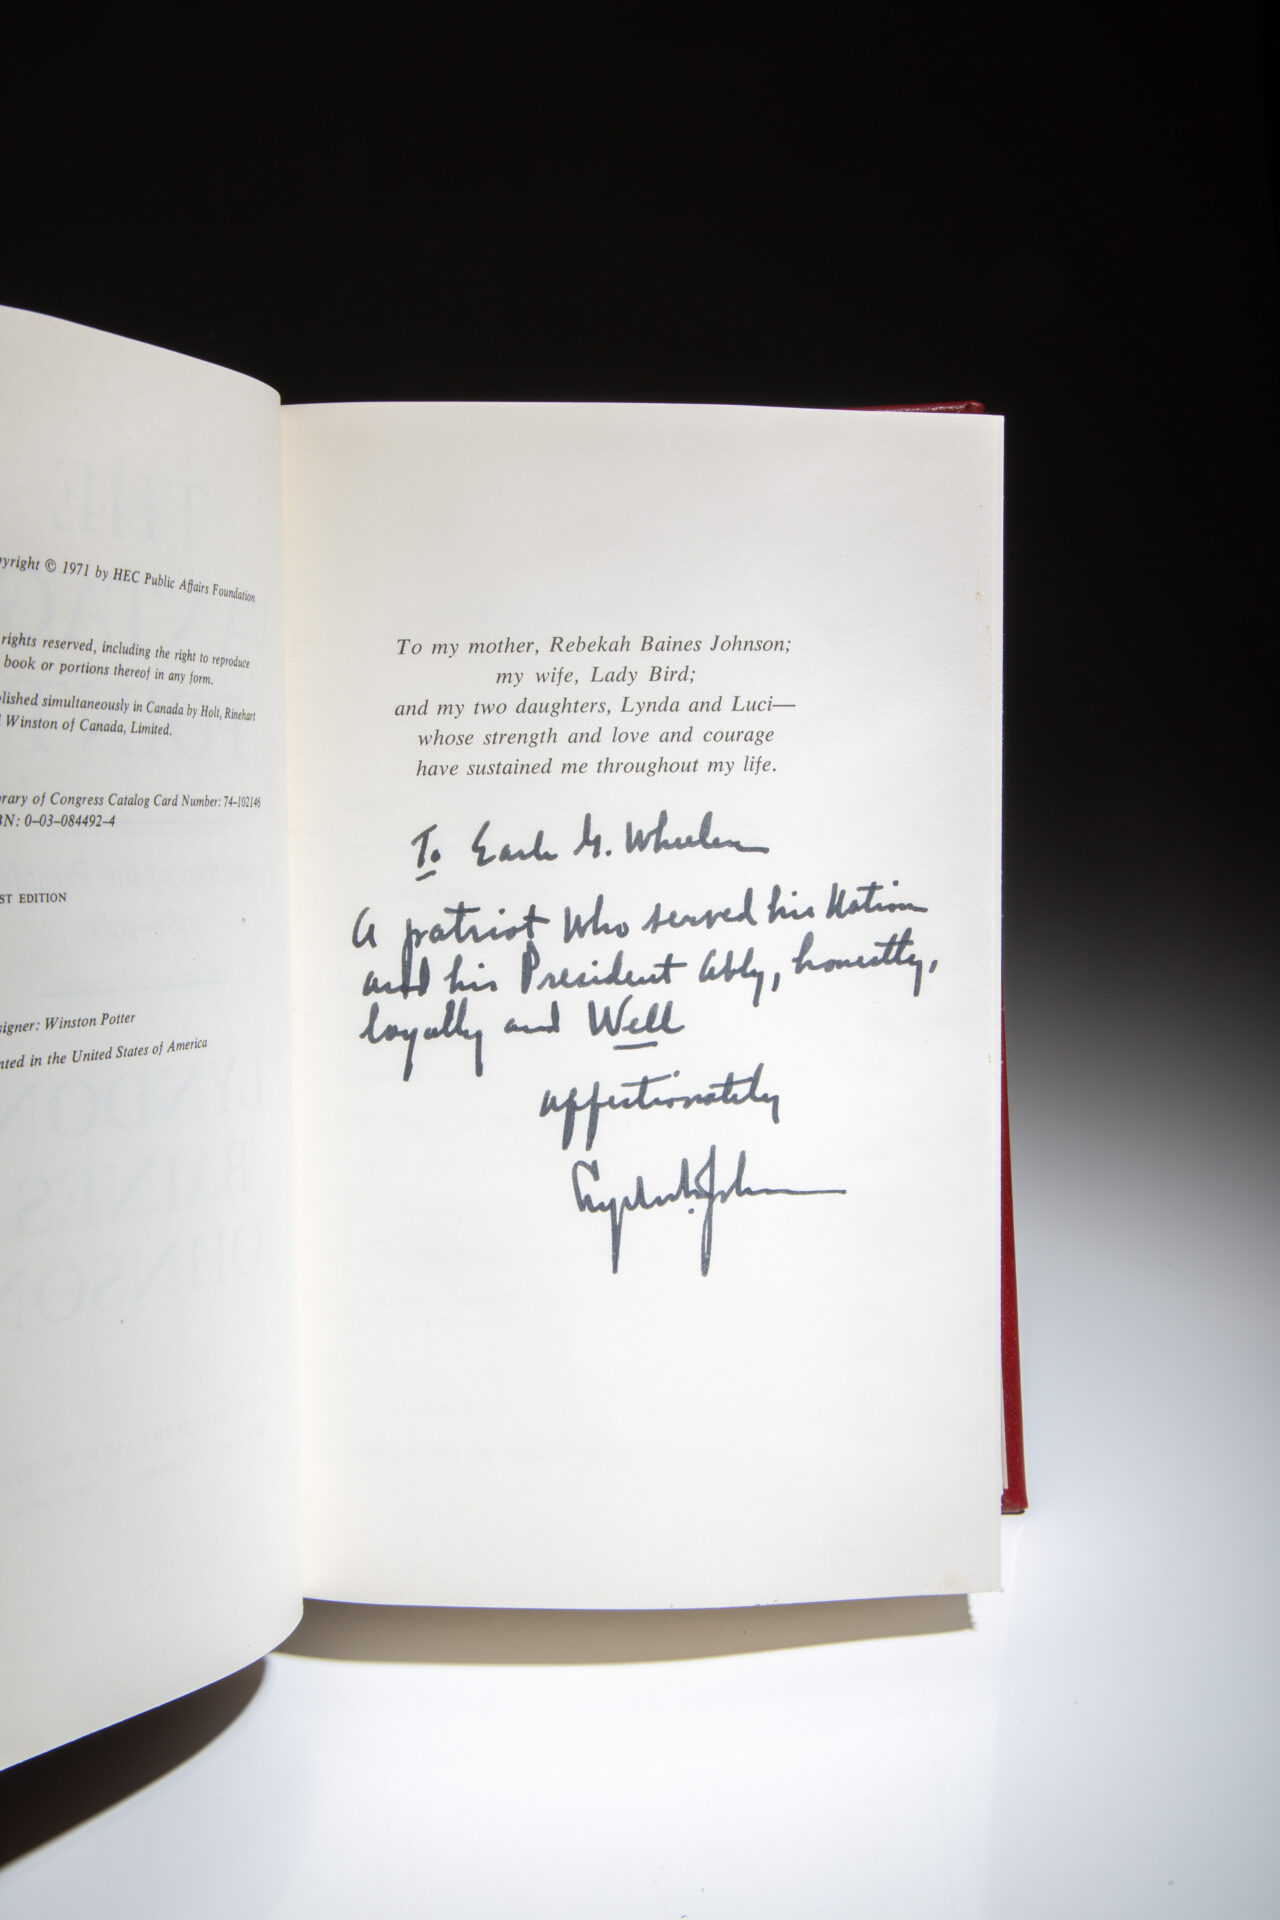 pyright © 1971 by HEC Public Affairs Foundation
rights reserved, including the right to reproduce
book or portions thereof in any form.
lished simultaneously in Canada by Holt, Rinehart
Winston of Canada, Limited.
rary of Congress Catalog Card Number: 74–102146
BN: 0–03–084492–4
ST EDITION
signer: Winston Potter
nted in the United States of America
To my mother, Rebekah Baines Johnson;
my wife, Lady Bird;
and my two daughters, Lynda and Luci—
whose strength and love and courage
have sustained me throughout my life.
To Earle G. Wheeler
A patriot who served his Nation
and his President ably, honestly,
loyally and Well
affectionately
Lyndon B. Johnson